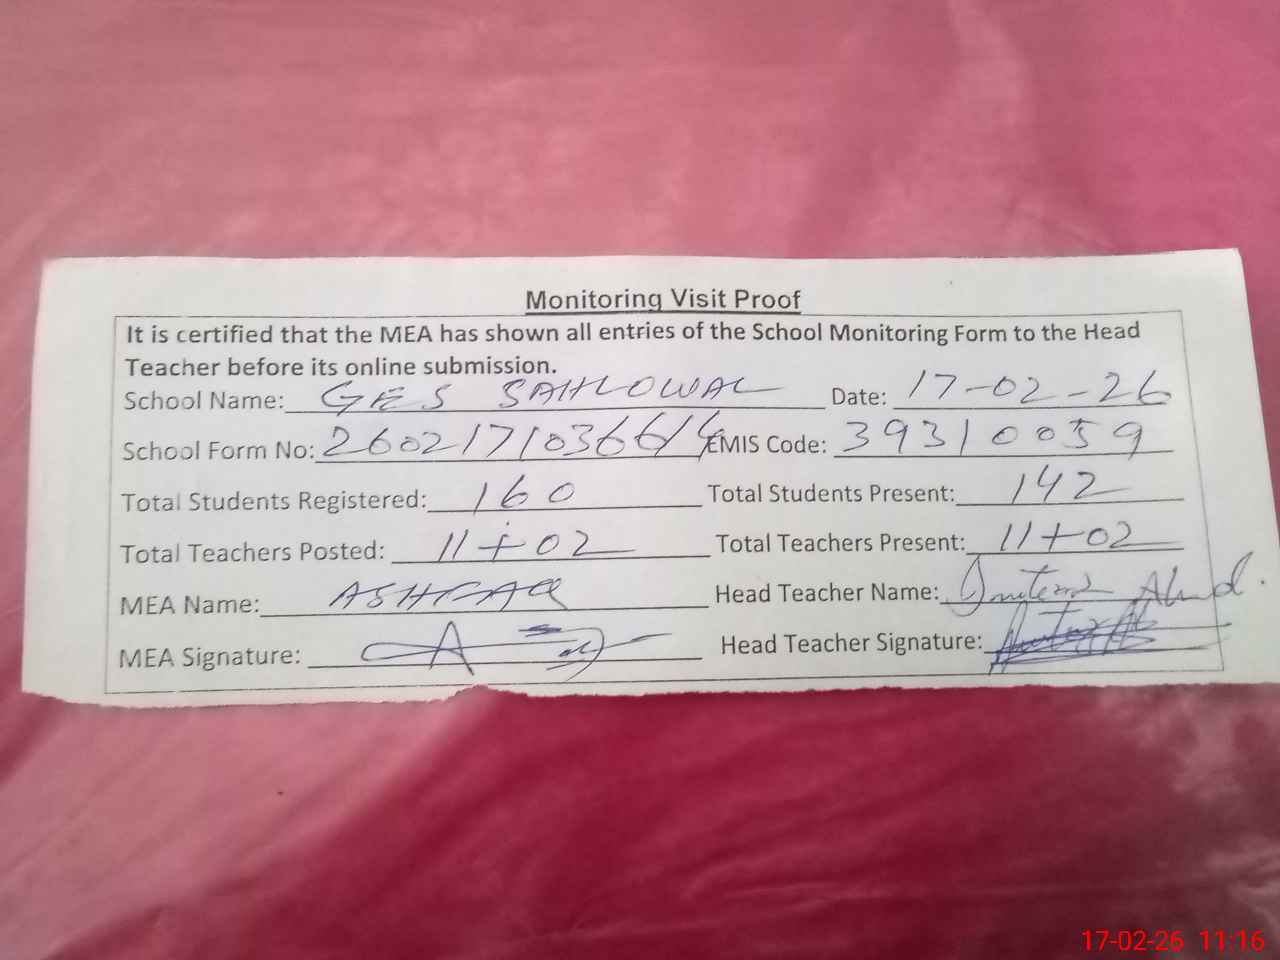 Monitoring Visit Proof
It is certified that the MEA has shown all entries of the School Monitoring Form to the Head
Teacher before its online submission.
School Name: GES SAHLOWAL Date: 17-02-26
School Form No: EMIS Code: 39310059
Total Students Registered: 160 Total Students Present: 142
Total Teachers Posted: 11+02 Total Teachers Present: 11+02
MEA Name: ASHFAQ Head Teacher Name:
MEA Signature: Head Teacher Signature:
17-02-26 11:16